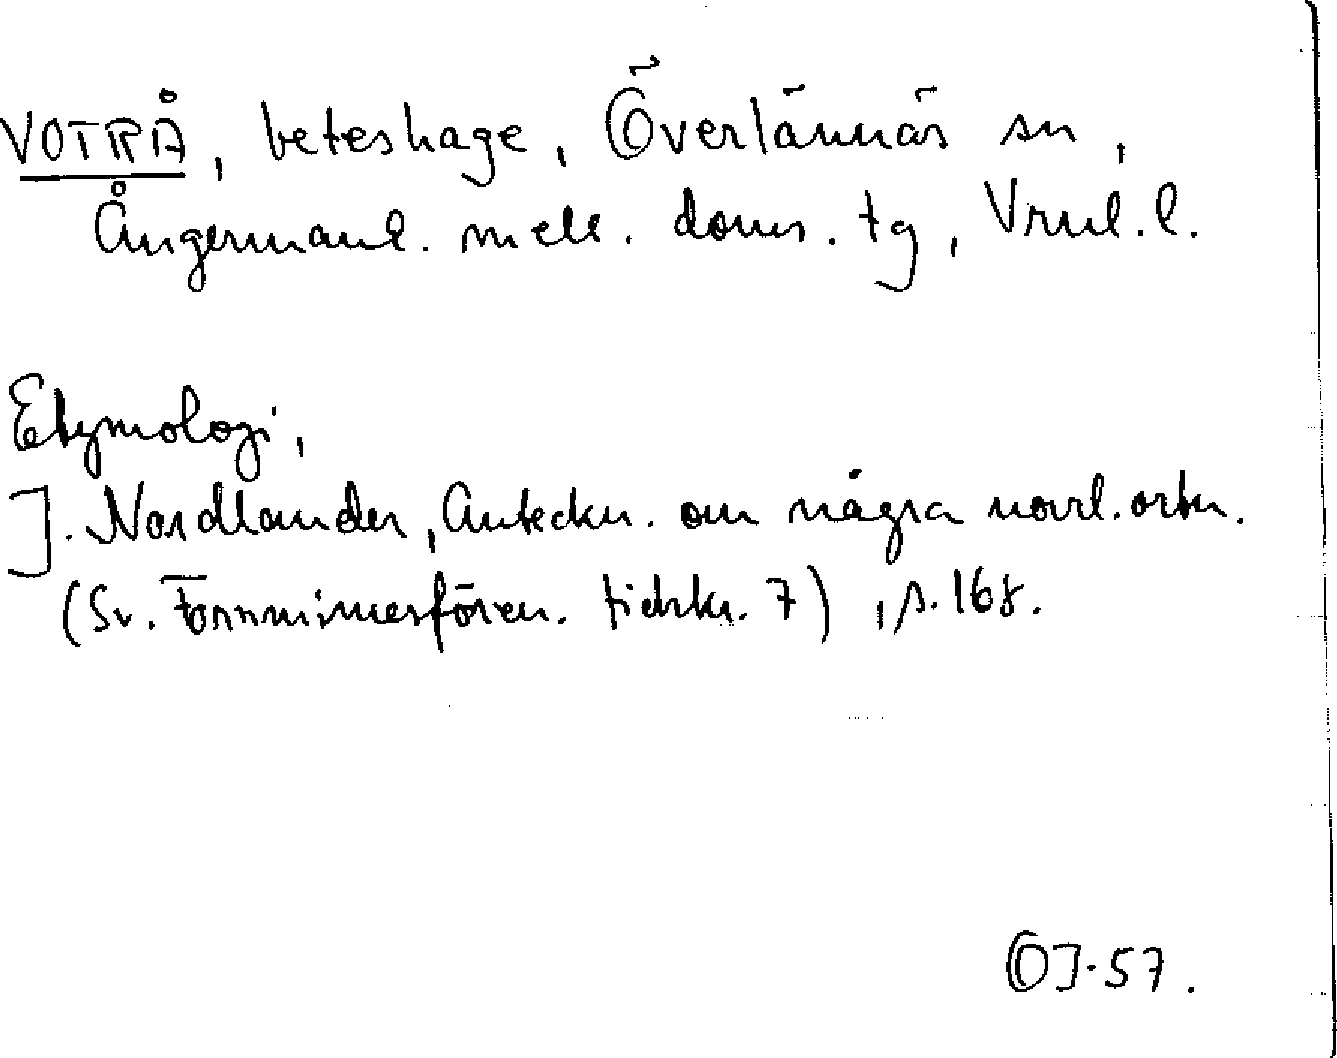 VOTRÅ, beteshage, Överlännäs sn,
Ångermanl. mell. doms. tg, Vrnl. l.
Etymologi,
J. Nordlander, Anteckn. om några norrl. ortn.
(Sv. Fornminnesfören. tidskr. 7), s. 168.
OJ. 57.